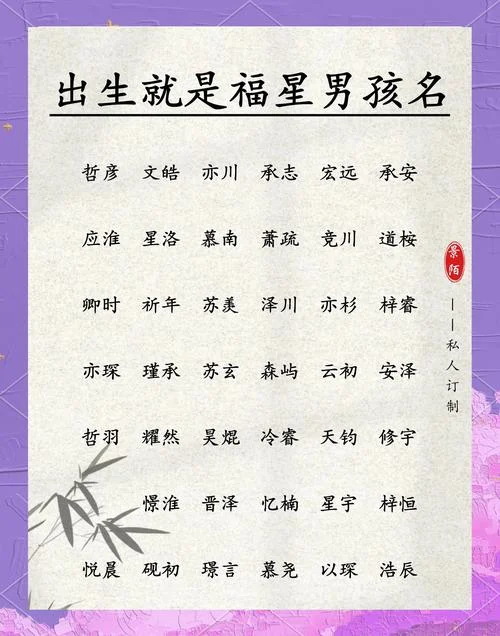 出生就是福星男孩名
哲彦 文皓 亦川 承志 宏远 承安
应淮 星洛 慕南 萧疏 竞川 道桉
卿时 祈年 苏羡 泽川 亦杉 梓睿
亦琛 瑾承 苏玄 森屿 云初 安泽
哲羽 耀然 昊焜 冷睿 天钧 修宇
憬淮 晋泽 忆楠 星宇 梓恒
悦晨 砚初 璟言 慕尧 以琛 浩辰
景陌
——私人订制